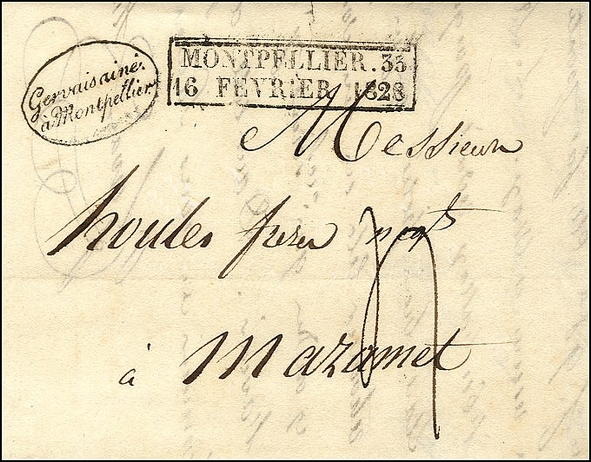 Gervais aîné.
à Montpellier
MONTPELLIER. 33
16 FÉVRIER 1828
Messieurs
houles freres negts
à Mazamet